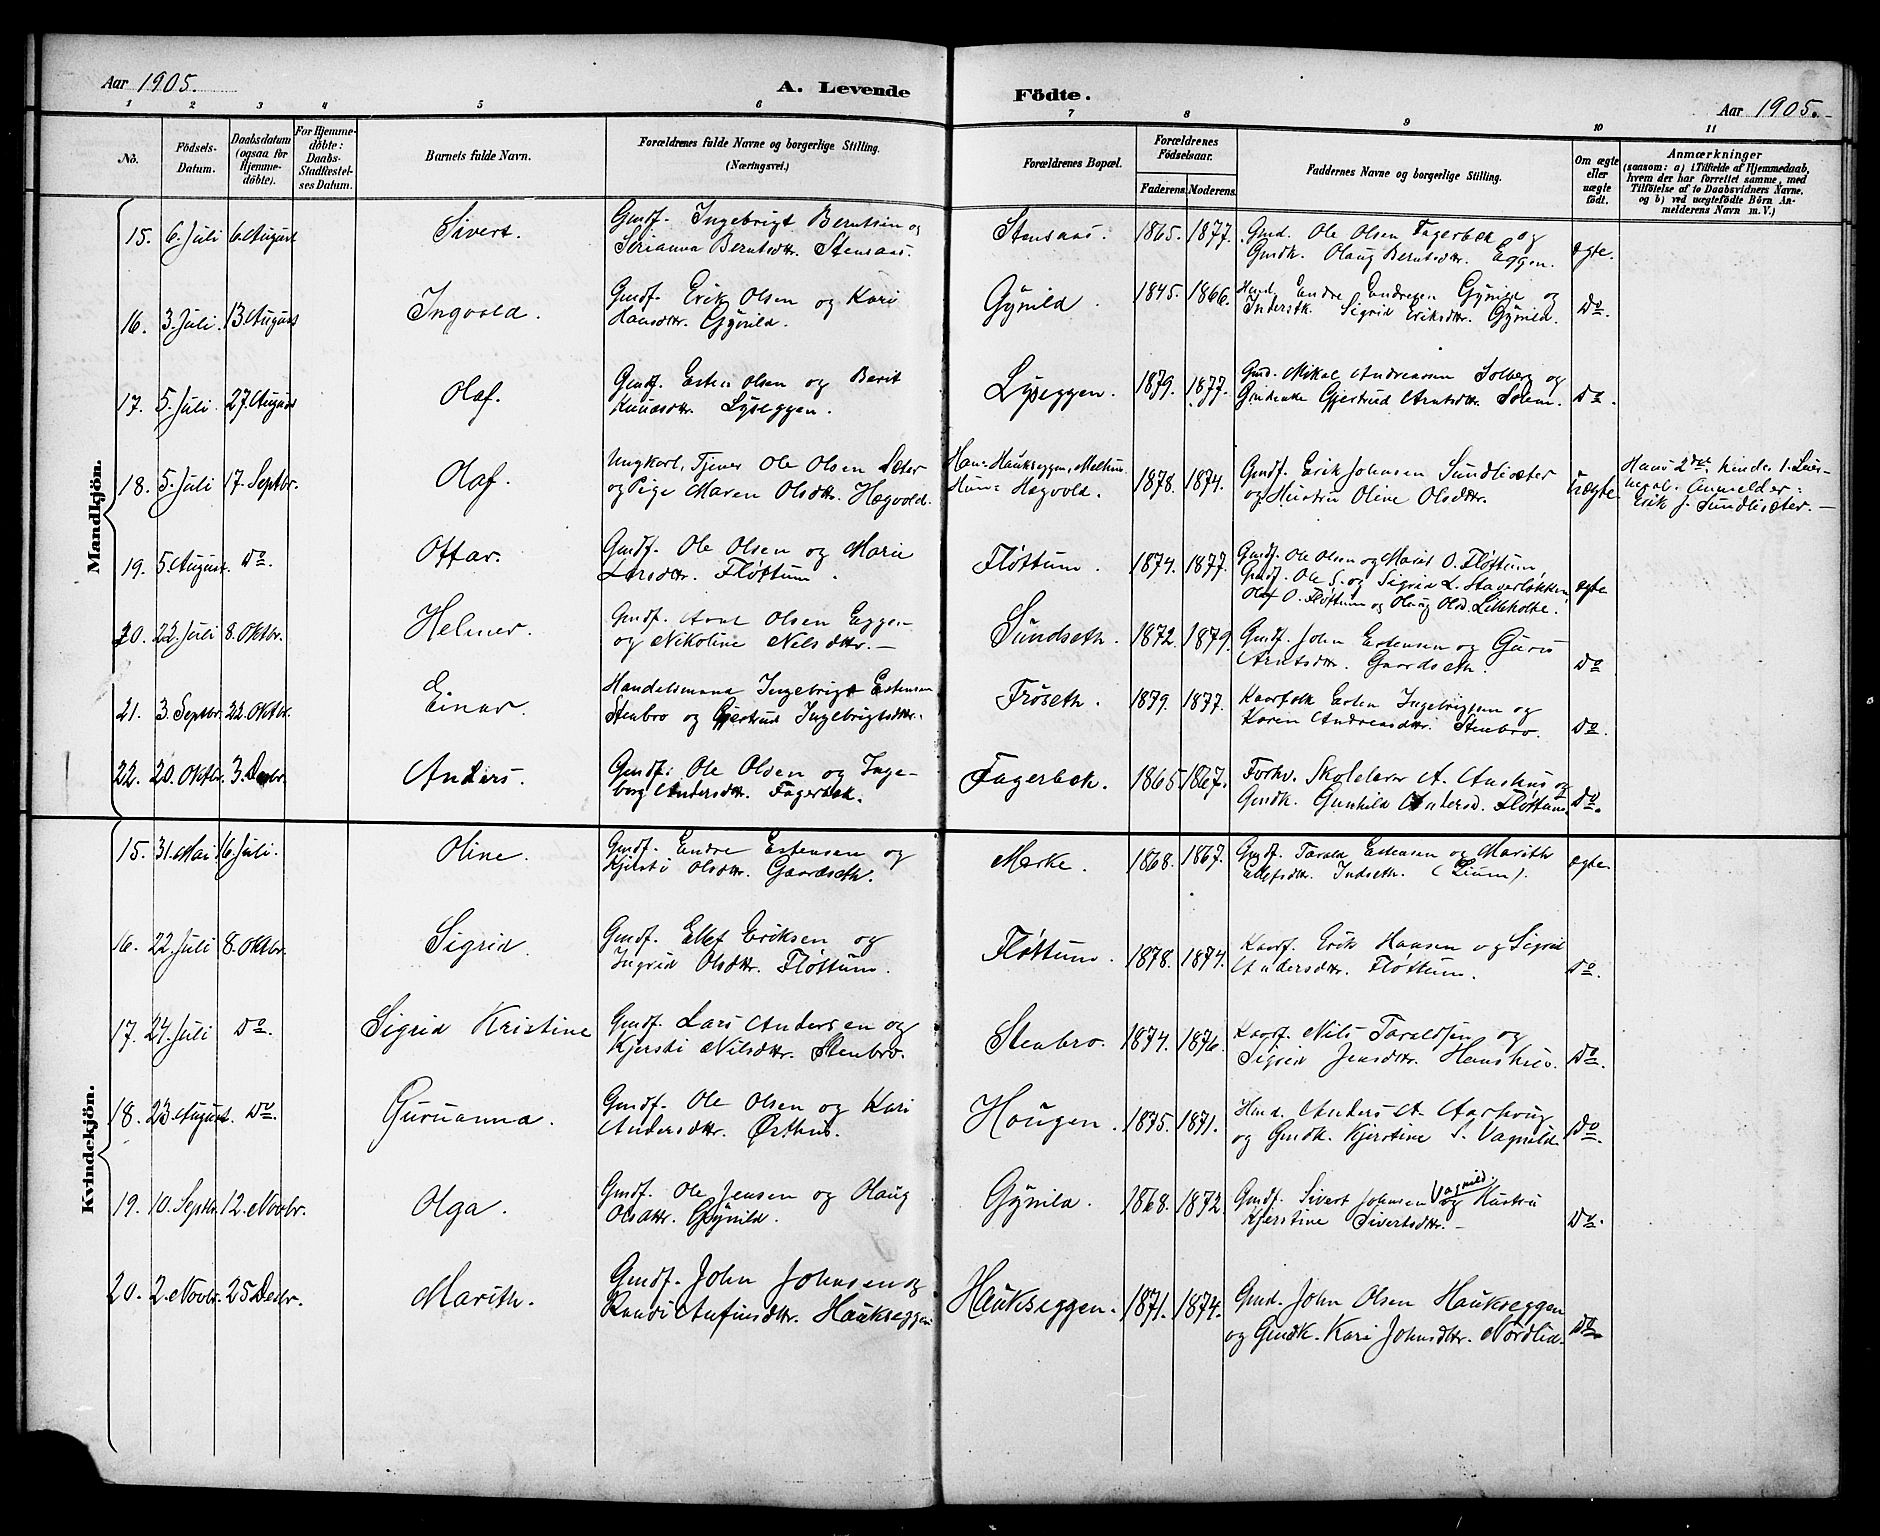 Aar 1905.
A. Levende Födte.
Aar 1905.
1 2 3 4 5 6 7 8 9 10 11
No.
Födsels-Datum.
Daabsdatum (ogsaa for Hjemme-döbte).
For Hjemme-döbte: Daabs-Stadfæstelses Datum.
Barnets fulde Navn.
Forældrenes fulde Navne og borgerlige Stilling.
(Næringsvei.)
Forældrenes Bopæl.
Forældrenes Födselsaar.
Faderens. Moderens.
Faddernes Navne og borgerlige Stilling.
Om ægte eller uægte födt.
Anmærkninger
(saasom: a) i Tilfælde af Hjemmedaab,
hvem der har forrettet samme, med
Tilföielse af to Daabsvidners Navne,
og b) ved uægtefödte Börn An-
melderens Navn m. V.)
Mandkjön.
15. 6. Juli 6. August Sivert. Gmdf. Ingebrigt Berntsen og
Serianna Berntsdtr. Stensaas. Stensaas. 1865. 1877. Gmd. Ole Olsen Fagerbek og
Gmdk. Olaug Berntsdtr. Eggen. ægte.
16. 3. Juli 13. August Ingvold. Gmdf. Erik Olsen og Kari
Hansdtr. Gynild. Gynild. 1845. 1866. Endre Endresen Gynild og
Inderstk. Sigrid Eriksdtr. Gynild. Do.
17. 5. Juli 27. August Olaf. Gmdf. Esten Olsen og Berit
Knudsdtr. Lyseggen. Lyseggen. 1879. 1877. Gmd. Mikal Andreassen Solberg og
Gjertrud Arntsdtr. Solem. Do.
18. 5. Juli 17. Septbr. Olaf. Ungkarl, Tjener Ole Olsen Sæter
og Pige Maren Olsdtr. Hægvold. Han: Haukseggen, Melhus
Hun: Hægvold. 1878. 1874. Gmdf. Erik Johnsen Sundlisæter
og Hustru Oline Olsdtr. Uægte Hans 2det, hendes 1. Leier-
maal. Anmelder:
Erik J. Sundlisæter.
19. 5. August. Do. Ottar. Gmdf. Ole Olsen og Marie
Larsdtr. Fløttum. Fløttum. 1874. 1877. Gmdf. Ole Olsen og Marit O. Fløttum,
Gmdf. Ole S. og Sigrid L. Staverløkken,
Olaf O. Fløttum og Olaug Olsd. Litleholte. ægte
20. 22. Juli 8. Oktbr. Helmer. Gmdf. Arnt Olsen Eggen
og Nikoline Nilsdtr. Sundseth. 1872. 1879. Gmdf. John Estensen og Guru
Arntsdtr. Gaardseth. Do
21. 3. Septbr. 22. Oktbr. Einar. Handelsmand Ingebrigt Estensen
Stenbro og Gjertrud Ingebrigtsdtr. Frøseth. 1879. 1877. Kaarfolk Esten Ingebrigtsen og
Karen Andreasdtr. Stenbro. Do.
22. 20. Oktbr. 3. Decbr. Anders. Gmdf. Ole Olsen og Inge-
borg Andersdtr. Fagerbek. Fagerbek. 1865. 1867. Forhv. Skolelærer A. Aashus og
Gmdk. Gunhild Andersd. Fløttum. Do.
Kvindekjön.
15. 31. Mai 16. Juli. Oline. Gmdf. Endre Estensen og
Kjersti Olsdtr. Gaardseth. Merke. 1868. 1867. Gmdf. Tarald Estensen og Marith
Ellefsdtr. Indseth. (Lium). ægte.
16. 22. Juli 8. Oktbr. Sigrid. Gmdf. Ellef Eriksen og
Ingrid Olsdtr. Fløttum. Fløttum. 1878. 1874. Kaarf. Erik Hansen og Sigrid
Andersdtr. Fløttum. Do.
17. 24. Juli Do. Sigrid Kristine Gmdf. Lars Andersen og
Kjersti Nilsdtr. Stenbro. Stenbro. 1874. 1876. Kaarf. Nils Taraldsen og
Sigrid Jensdtr. Hanshus. Do.
18. 23. August. Do. Guruanna. Gmdf. Ole Olsen og Kari
Andersdtr. Østhus. Haugen. 1875. 1871. Anders A. Aashaug
og Gmdk. Kjerstine S. Vagnild. Do.
19. 10. Septbr. 12. Novbr. Olga. Gmdf. Ole Jensen og Olaug
Olsdtr. Gynild. Gynild. 1868. 1872. Gmdf. Sivert Johnsen Vagnild og Hustru
Kjerstine Sivertsdtr. Do.
20. 2. Novbr. 25 Decbr. Marith. Gmdf. John Johnsen og
Randi Anfinsdtr. Haukseggen Haukseggen. 1871. 1874. Gmd. John Olsen Haukseggen
og Gmdk. Kari Johnsdtr. Nordlid. Do.